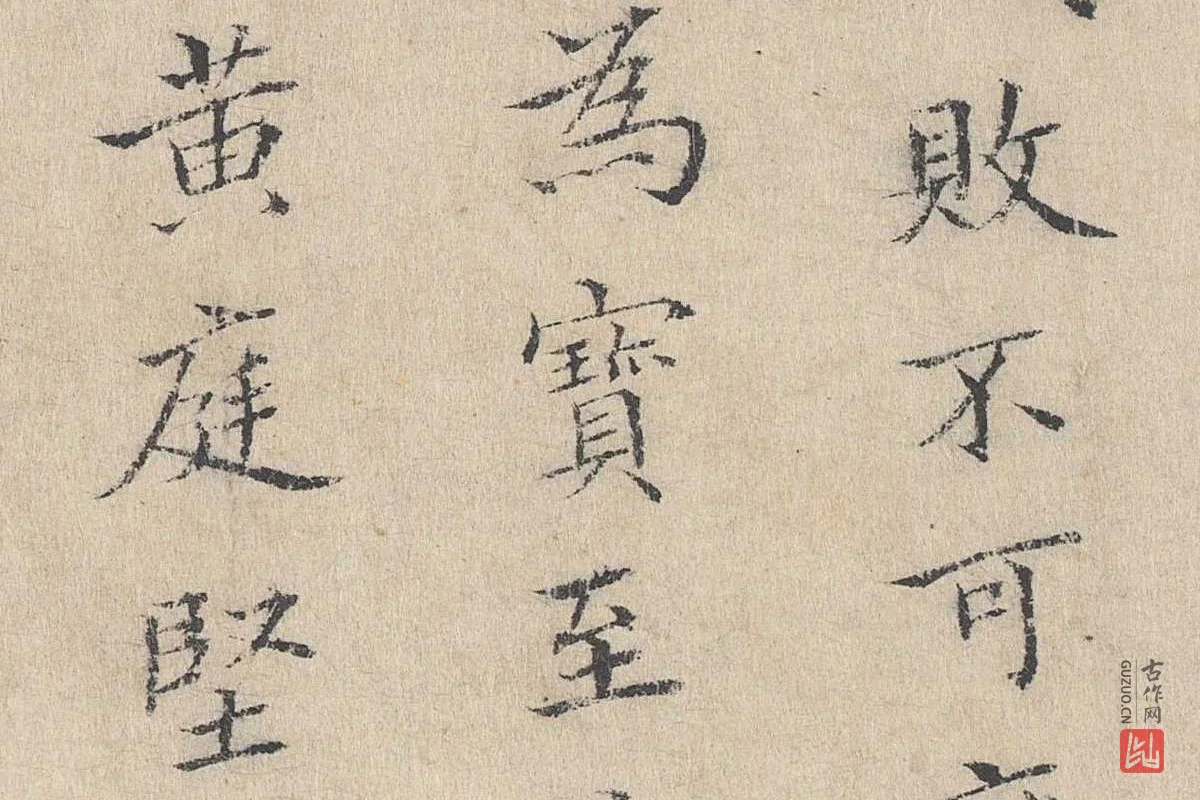 敗不可
為寶至
黄庭堅
古作网
GUZUO.CN